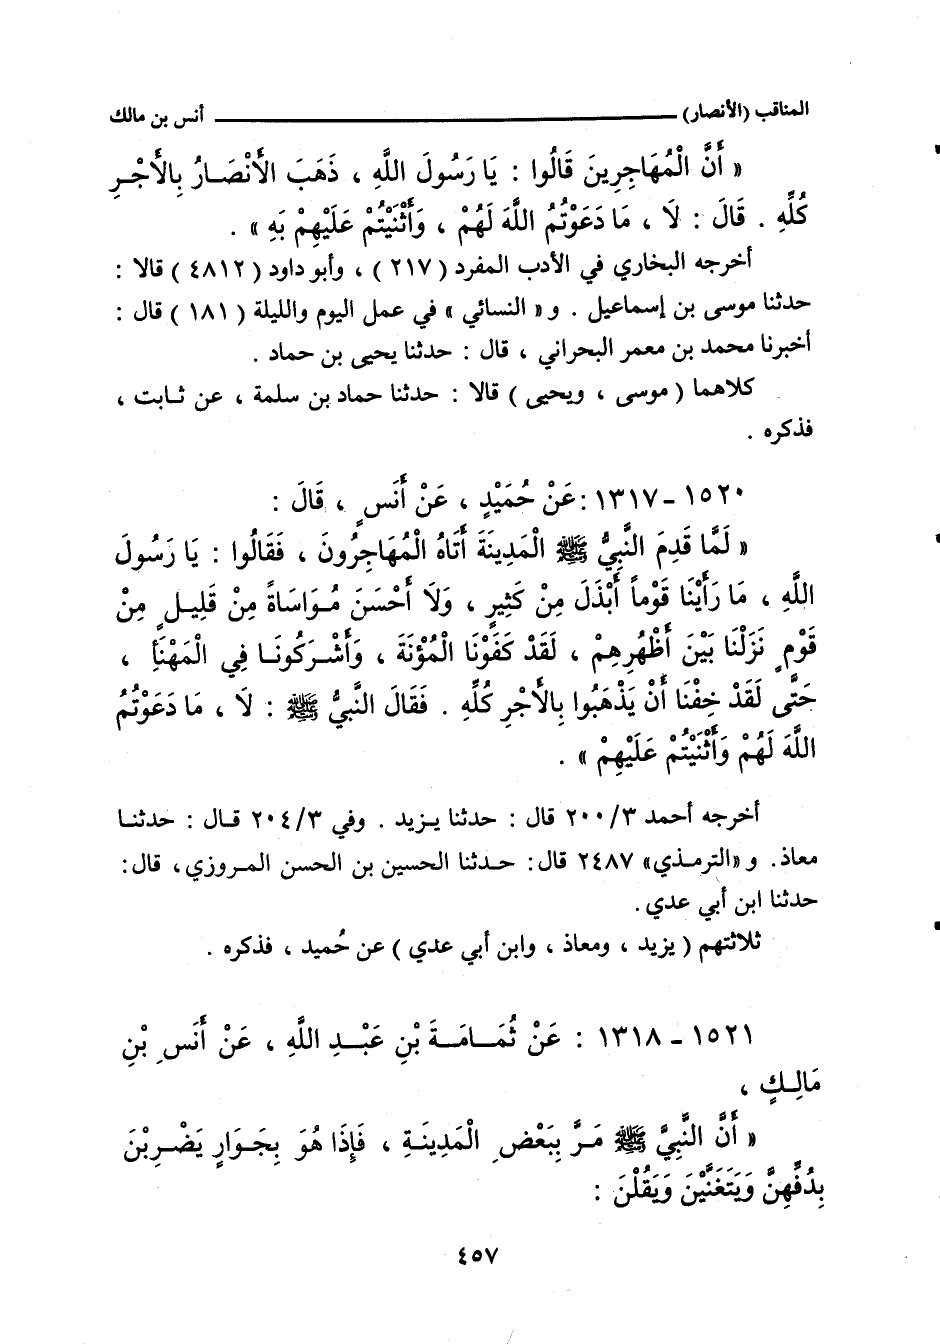 المناقب (الأنصار) ـــــــــ أنس بن مالك
« أَنَّ الْمُهَاجِرِينَ قَالُوا : يَا رَسُولَ اللَّهِ ، ذَهَبَ الأَنْصَارُ بِالأَجْرِ
كُلِّهِ . قَالَ : لَا ، مَا دَعَوْتُمُ اللَّهَ لَهُمْ ، وَأَثْنَيْتُمْ عَلَيْهِمْ بَهِ » .
أخرجه البخاري في الأدب المفرد ( ٢١٧ ) ، وأبو داود ( ٤٨١٢ ) قالا :
حدثنا موسى بن إسماعيل . و « النسائي » في عمل اليوم والليلة ( ١٨١ ) قال :
أخبرنا محمد بن معمر البحراني ، قال : حدثنا يحيى بن حماد .
كلاهما ( موسى ، ويحيى ) قالا : حدثنا حماد بن سلمة ، عن ثابت ،
فذكره .
١٥٢٠ ـ ١٣١٧ : عَنْ حُمَيْدٍ ، عَنْ أَنَسٍ ، قَالَ :
« لَمَّا قَدِمَ النَّبِيُّ ﷺ الْمَدِينَةَ أَتَاهُ الْمُهَاجِرُونَ ، فَقَالُوا : يَا رَسُولَ
اللَّهِ ، مَا رَأَيْنَا قَوْماً أَبْذَلَ مِنْ كَثِيرٍ ، وَلَا أَحْسَنَ مُوَاسَاةً مِنْ قَلِيلٍ مِنْ
قَوْمٍ نَزَلْنَا بَيْنَ أَظْهُرِهِمْ ، لَقَدْ كَفَوْنَا الْمُؤْنَةَ ، وَأَشْرَكُونَا فِي الْمَهْنَأِ ،
حَتَّى لَقَدْ خِفْنَا أَنْ يَذْهَبُوا بِالأَجْرِ كُلِّهِ . فَقَالَ النَّبِيُّ ﷺ : لَا ، مَا دَعَوْتُمُ
اللَّهَ لَهُمْ وَأَثْنَيْتُمْ عَلَيْهِمْ » .
أخرجه أحمد ٢٠٠/٣ قال : حدثنا يزيد . وفي ٢٠٤/٣ قال : حدثنا
معاذ. و «الترمذي» ٢٤٨٧ قال: حدثنا الحسين بن الحسن المروزي، قال:
حدثنا ابن أبي عدي.
ثلاثتهم ( يزيد ، ومعاذ ، وابن أبي عدي ) عن حُميد ، فذكره .
١٥٢١ ـ ١٣١٨ : عَنْ ثُمَامَةَ بْنِ عَبْدِ اللَّهِ ، عَنْ أَنَسِ بْنِ
مَالِكٍ ،
« أَنَّ النَّبِيَّ ﷺ مَرَّ بِبَعْضِ الْمَدِينَةِ ، فَإِذَا هُوَ بِجَوَارٍ يَضْرِبْنَ
بِدُفِّهِنَّ وَيَتَغَنَّيْنَ وَيَقُلْنَ :
٤٥٧